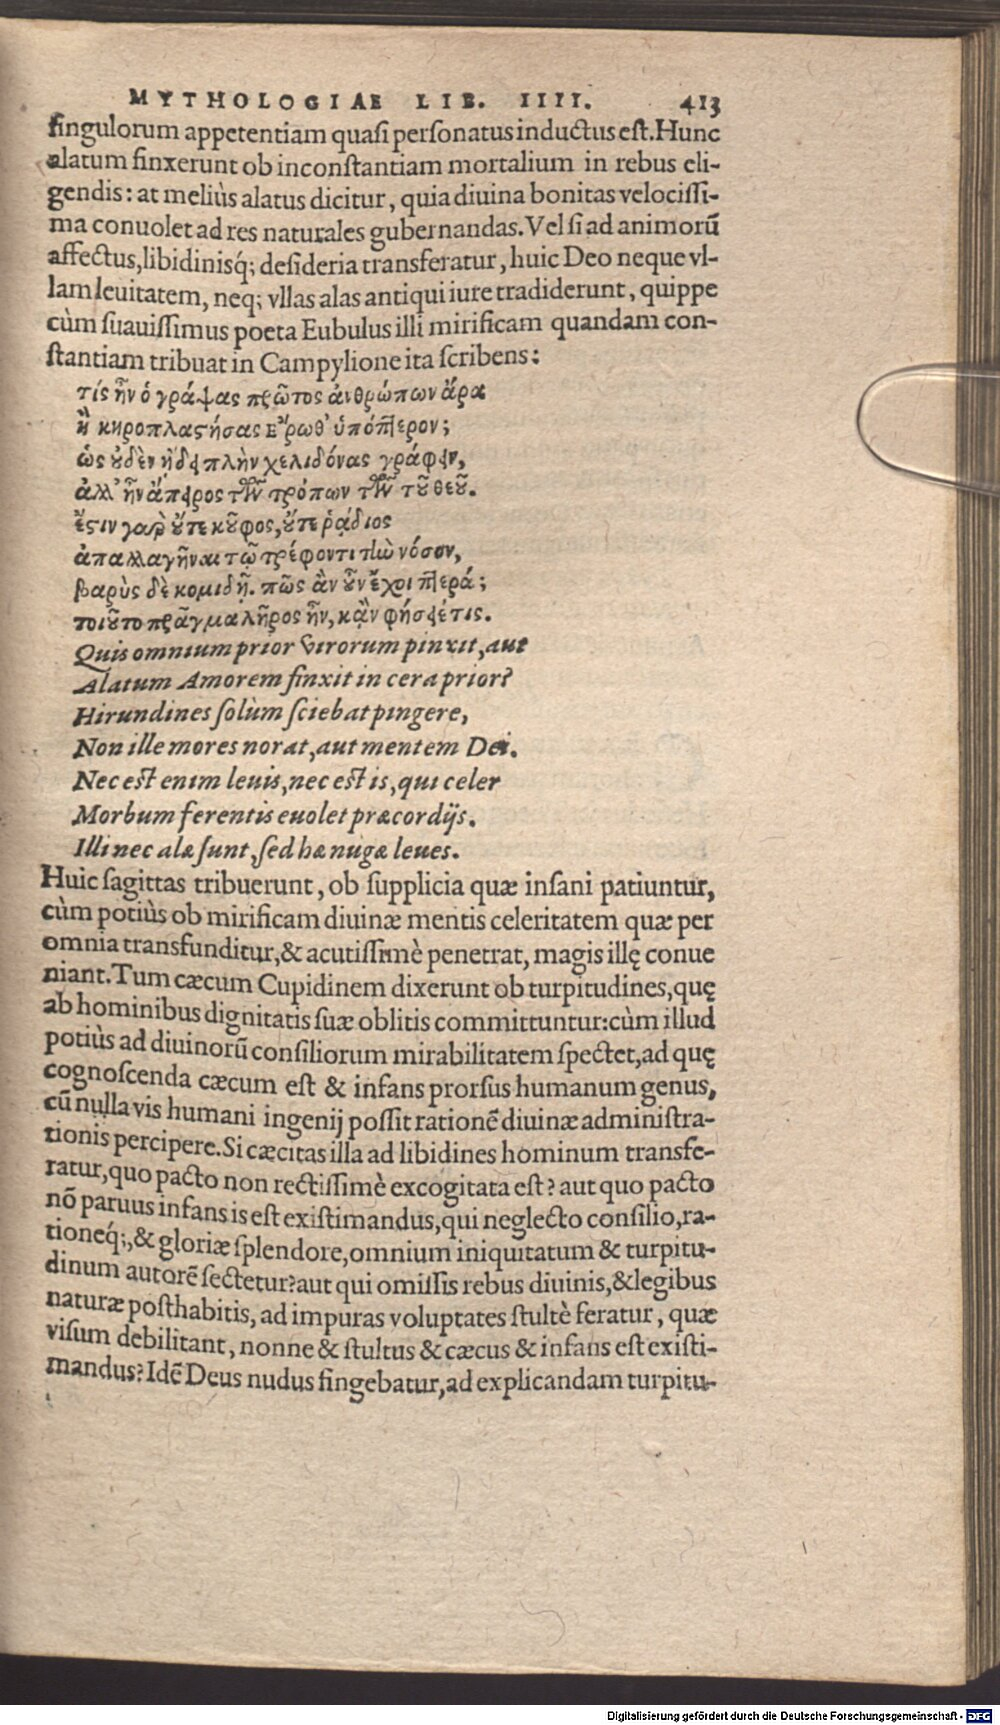 MYTHOLOGIAE LIB. IIII. 413
singulorum appetentiam quasi personatus inductus est. Hunc
alatum finxerunt ob inconstantiam mortalium in rebus eli-
gendis: at meliùs alatus dicitur, quia diuina bonitas velocissi-
ma conuolet ad res naturales gubernandas. Vel si ad animorū
affectus, libidinisq́; desideria transferatur, huic Deo neque vl-
lam leuitatem, neq; vllas alas antiqui iure tradiderunt, quippe
cùm suauissimus poeta Eubulus illi mirificam quandam con-
stantiam tribuat in Campylione ita scribens:
τίς ἦν ὁ γράψας πρῶτος ἀνθρώπων ἄρα
ἢ κηροπλαστήσας Ἔρωθ' ὑπόπτερον;
ὡς οὐδὲν ᾔδει πλὴν χελιδόνας γράφειν,
ἀλλ' ἦν ἄπειρος τῶν τρόπων τῶν τοῦ θεοῦ.
ἔστιν γὰρ οὔτε κοῦφος, οὔτε ῥᾴδιος
ἀπαλλαγῆναι τῷ τρέφοντι τὴν νόσον,
βαρὺς δὲ κομιδῇ. πῶς ἂν οὖν ἔχοι πτερά;
τοιοῦτο πρᾶγμα λῆρος ἦν, κἂν φήσειέ τις.
Quis omnium prior virorum pinxit, aut
Alatum Amorem finxit in cera prior?
Hirundines solùm sciebat pingere,
Non ille mores norat, aut mentem Dei.
Nec est enim leuis, nec est is, qui celer
Morbum ferentis euolet præcordijs.
Illi nec alæ sunt, sed hæ nugæ leues.
Huic sagittas tribuerunt, ob supplicia quæ insani patiuntur,
cùm potiùs ob mirificam diuinæ mentis celeritatem quæ per
omnia transfunditur, & acutissimè penetrat, magis illę conue
niant. Tum cæcum Cupidinem dixerunt ob turpitudines, quę
ab hominibus dignitatis suæ oblitis committuntur: cùm illud
potiùs ad diuinorū consiliorum mirabilitatem spectet, ad quę
cognoscenda cæcum est & infans prorsus humanum genus,
cū nulla vis humani ingenij possit rationē diuinæ administra-
tionis percipere. Si cæcitas illa ad libidines hominum transfe-
ratur, quo pacto non rectissimè excogitata est? aut quo pacto
nō paruus infans is est existimandus, qui neglecto consilio, ra-
tioneq́;, & gloriæ splendore, omnium iniquitatum & turpitu-
dinum autorē sectetur? aut qui omissis rebus diuinis, & legibus
naturæ posthabitis, ad impuras voluptates stultè feratur, quæ
visum debilitant, nonne & stultus & cæcus & infans est existi-
mandus? Idē Deus nudus fingebatur, ad explicandam turpitu-
Digitalisierung gefördert durch die Deutsche Forschungsgemeinschaft - DFG